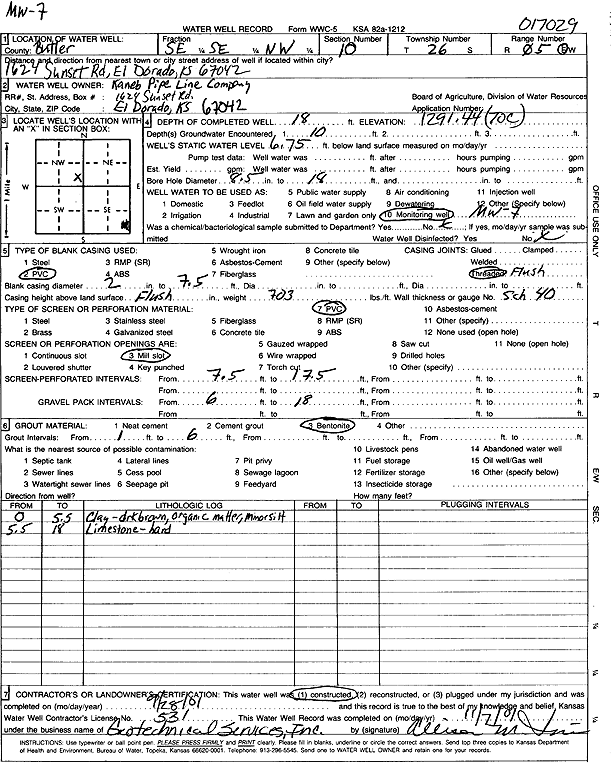 MW-7
017029
WATER WELL RECORD Form WWC-5 KSA 82a-1212
1 LOCATION OF WATER WELL: Fraction Section Number Township Number Range Number
County: Butler SE ¼ SE ¼ NW ¼ 10 T 26 S R 05 E/W
Distance and direction from nearest town or city street address of well if located within city?
1624 Sunset Rd, El Dorado, KS 67042
2 WATER WELL OWNER: Kaneb Pipe Line Company
RR#, St. Address, Box # : 1624 Sunset Rd. Board of Agriculture, Division of Water Resources
City, State, ZIP Code : El Dorado, KS 67042 Application Number:
3 LOCATE WELL'S LOCATION WITH AN "X" IN SECTION BOX:
N
NW NE
W X E
SW SE
S
1 Mile
4 DEPTH OF COMPLETED WELL 18 ft. ELEVATION: 1291.44 (TOC)
Depth(s) Groundwater Encountered 1. 10 ft. 2. ft. 3. ft.
WELL'S STATIC WATER LEVEL 6.75 ft. below land surface measured on mo/day/yr
Pump test data: Well water was ft. after hours pumping gpm
Est. Yield gpm: Well water was ft. after hours pumping gpm
Bore Hole Diameter 8.5 in. to 18 ft., and in. to ft.
WELL WATER TO BE USED AS: 5 Public water supply 8 Air conditioning 11 Injection well
1 Domestic 3 Feedlot 6 Oil field water supply 9 Dewatering 12 Other (Specify below)
2 Irrigation 4 Industrial 7 Lawn and garden only 10 Monitoring well MW-7
Was a chemical/bacteriological sample submitted to Department? Yes No X; If yes, mo/day/yr sample was submitted
Water Well Disinfected? Yes No X
5 TYPE OF BLANK CASING USED: 5 Wrought iron 8 Concrete tile CASING JOINTS: Glued Clamped
1 Steel 3 RMP (SR) 6 Asbestos-Cement 9 Other (specify below) Welded
2 PVC 4 ABS 7 Fiberglass Threaded Flush
Blank casing diameter 2 in. to 7.5 ft., Dia in. to ft., Dia in. to ft.
Casing height above land surface Flush in., weight .703 lbs./ft. Wall thickness or gauge No. Sch. 40
TYPE OF SCREEN OR PERFORATION MATERIAL: 7 PVC 10 Asbestos-cement
1 Steel 3 Stainless steel 5 Fiberglass 8 RMP (SR) 11 Other (specify)
2 Brass 4 Galvanized steel 6 Concrete tile 9 ABS 12 None used (open hole)
SCREEN OR PERFORATION OPENINGS ARE: 5 Gauzed wrapped 8 Saw cut 11 None (open hole)
1 Continuous slot 3 Mill slot 6 Wire wrapped 9 Drilled holes
2 Louvered shutter 4 Key punched 7 Torch cut 10 Other (specify)
SCREEN-PERFORATED INTERVALS: From 7.5 ft. to 17.5 ft., From ft. to ft.
From ft. to ft., From ft. to ft.
GRAVEL PACK INTERVALS: From 6 ft. to 18 ft., From ft. to ft.
From ft. to ft., From ft. to ft.
6 GROUT MATERIAL: 1 Neat cement 2 Cement grout 3 Bentonite 4 Other
Grout Intervals: From 1 ft. to 6 ft., From ft. to ft., From ft. to ft.
What is the nearest source of possible contamination: 10 Livestock pens 14 Abandoned water well
1 Septic tank 4 Lateral lines 7 Pit privy 11 Fuel storage 15 Oil well/Gas well
2 Sewer lines 5 Cess pool 8 Sewage lagoon 12 Fertilizer storage 16 Other (specify below)
3 Watertight sewer lines 6 Seepage pit 9 Feedyard 13 Insecticide storage
Direction from well? How many feet?
FROM TO LITHOLOGIC LOG FROM TO PLUGGING INTERVALS
0 5.5 Clay - drk brown, organic matter, minor silt
5.5 18 Limestone - hard
7 CONTRACTOR'S OR LANDOWNER'S CERTIFICATION: This water well was (1) constructed, (2) reconstructed, or (3) plugged under my jurisdiction and was
completed on (mo/day/year) 9/28/01 and this record is true to the best of my knowledge and belief. Kansas
Water Well Contractor's License No. 531 This Water Well Record was completed on (mo/day/yr) 11/7/01
under the business name of Geotechnical Services, Inc. by (signature)
INSTRUCTIONS: Use typewriter or ball point pen. PLEASE PRESS FIRMLY and PRINT clearly. Please fill in blanks, underline or circle the correct answers. Send top three copies to Kansas Department
of Health and Environment, Bureau of Water, Topeka, Kansas 66620-0001. Telephone: 913-296-5545. Send one to WATER WELL OWNER and retain one for your records.
OFFICE USE ONLY
T
R
E/W
SEC.
¼
¼
¼